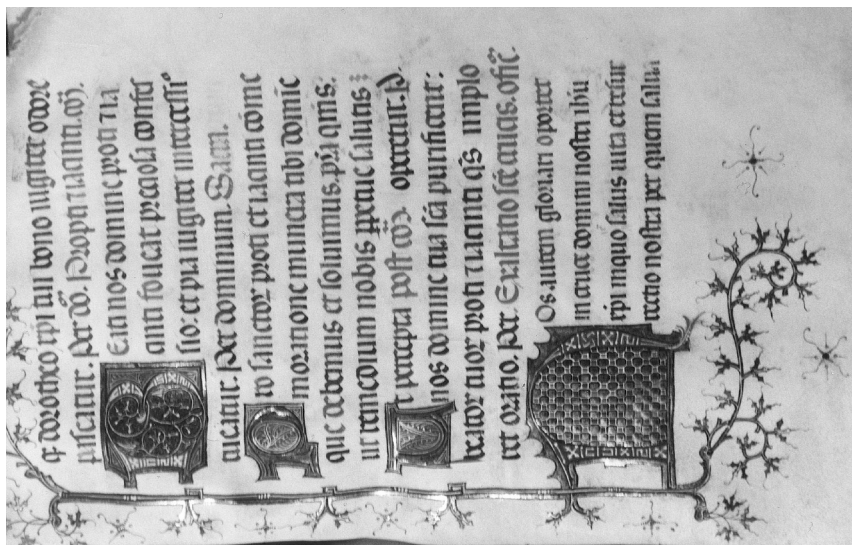 qs dorotheo xpi tui bono iugiter odore
pascatur. Per dō. Proti ⁊ iacinti. m̄.
Eati nos domine proti ⁊ ia
cinti foueat preciosa confes
sio: et pia iugiter intercessio
tueatur. Per dominum. Secret.
ro sanctoꝝ proti et iacinti come
moratione munera tibi domine
que debemus exsoluimus. p̄sta qm̄s.
ut remedium nobis ꝑpetue salutis :
t percepta post cō. operetur. p̄.
nos domine tua scā purificent:
beatoꝝ tuoꝝ proti ⁊ iacinti q̄s implo
ret oratio. per. Exaltatio scē crucis. offic̄.
Os autem gloriari oportet
in cruce domini nostri ihu
xpi in quo salus uita et resur
rectio nostra per quem salua